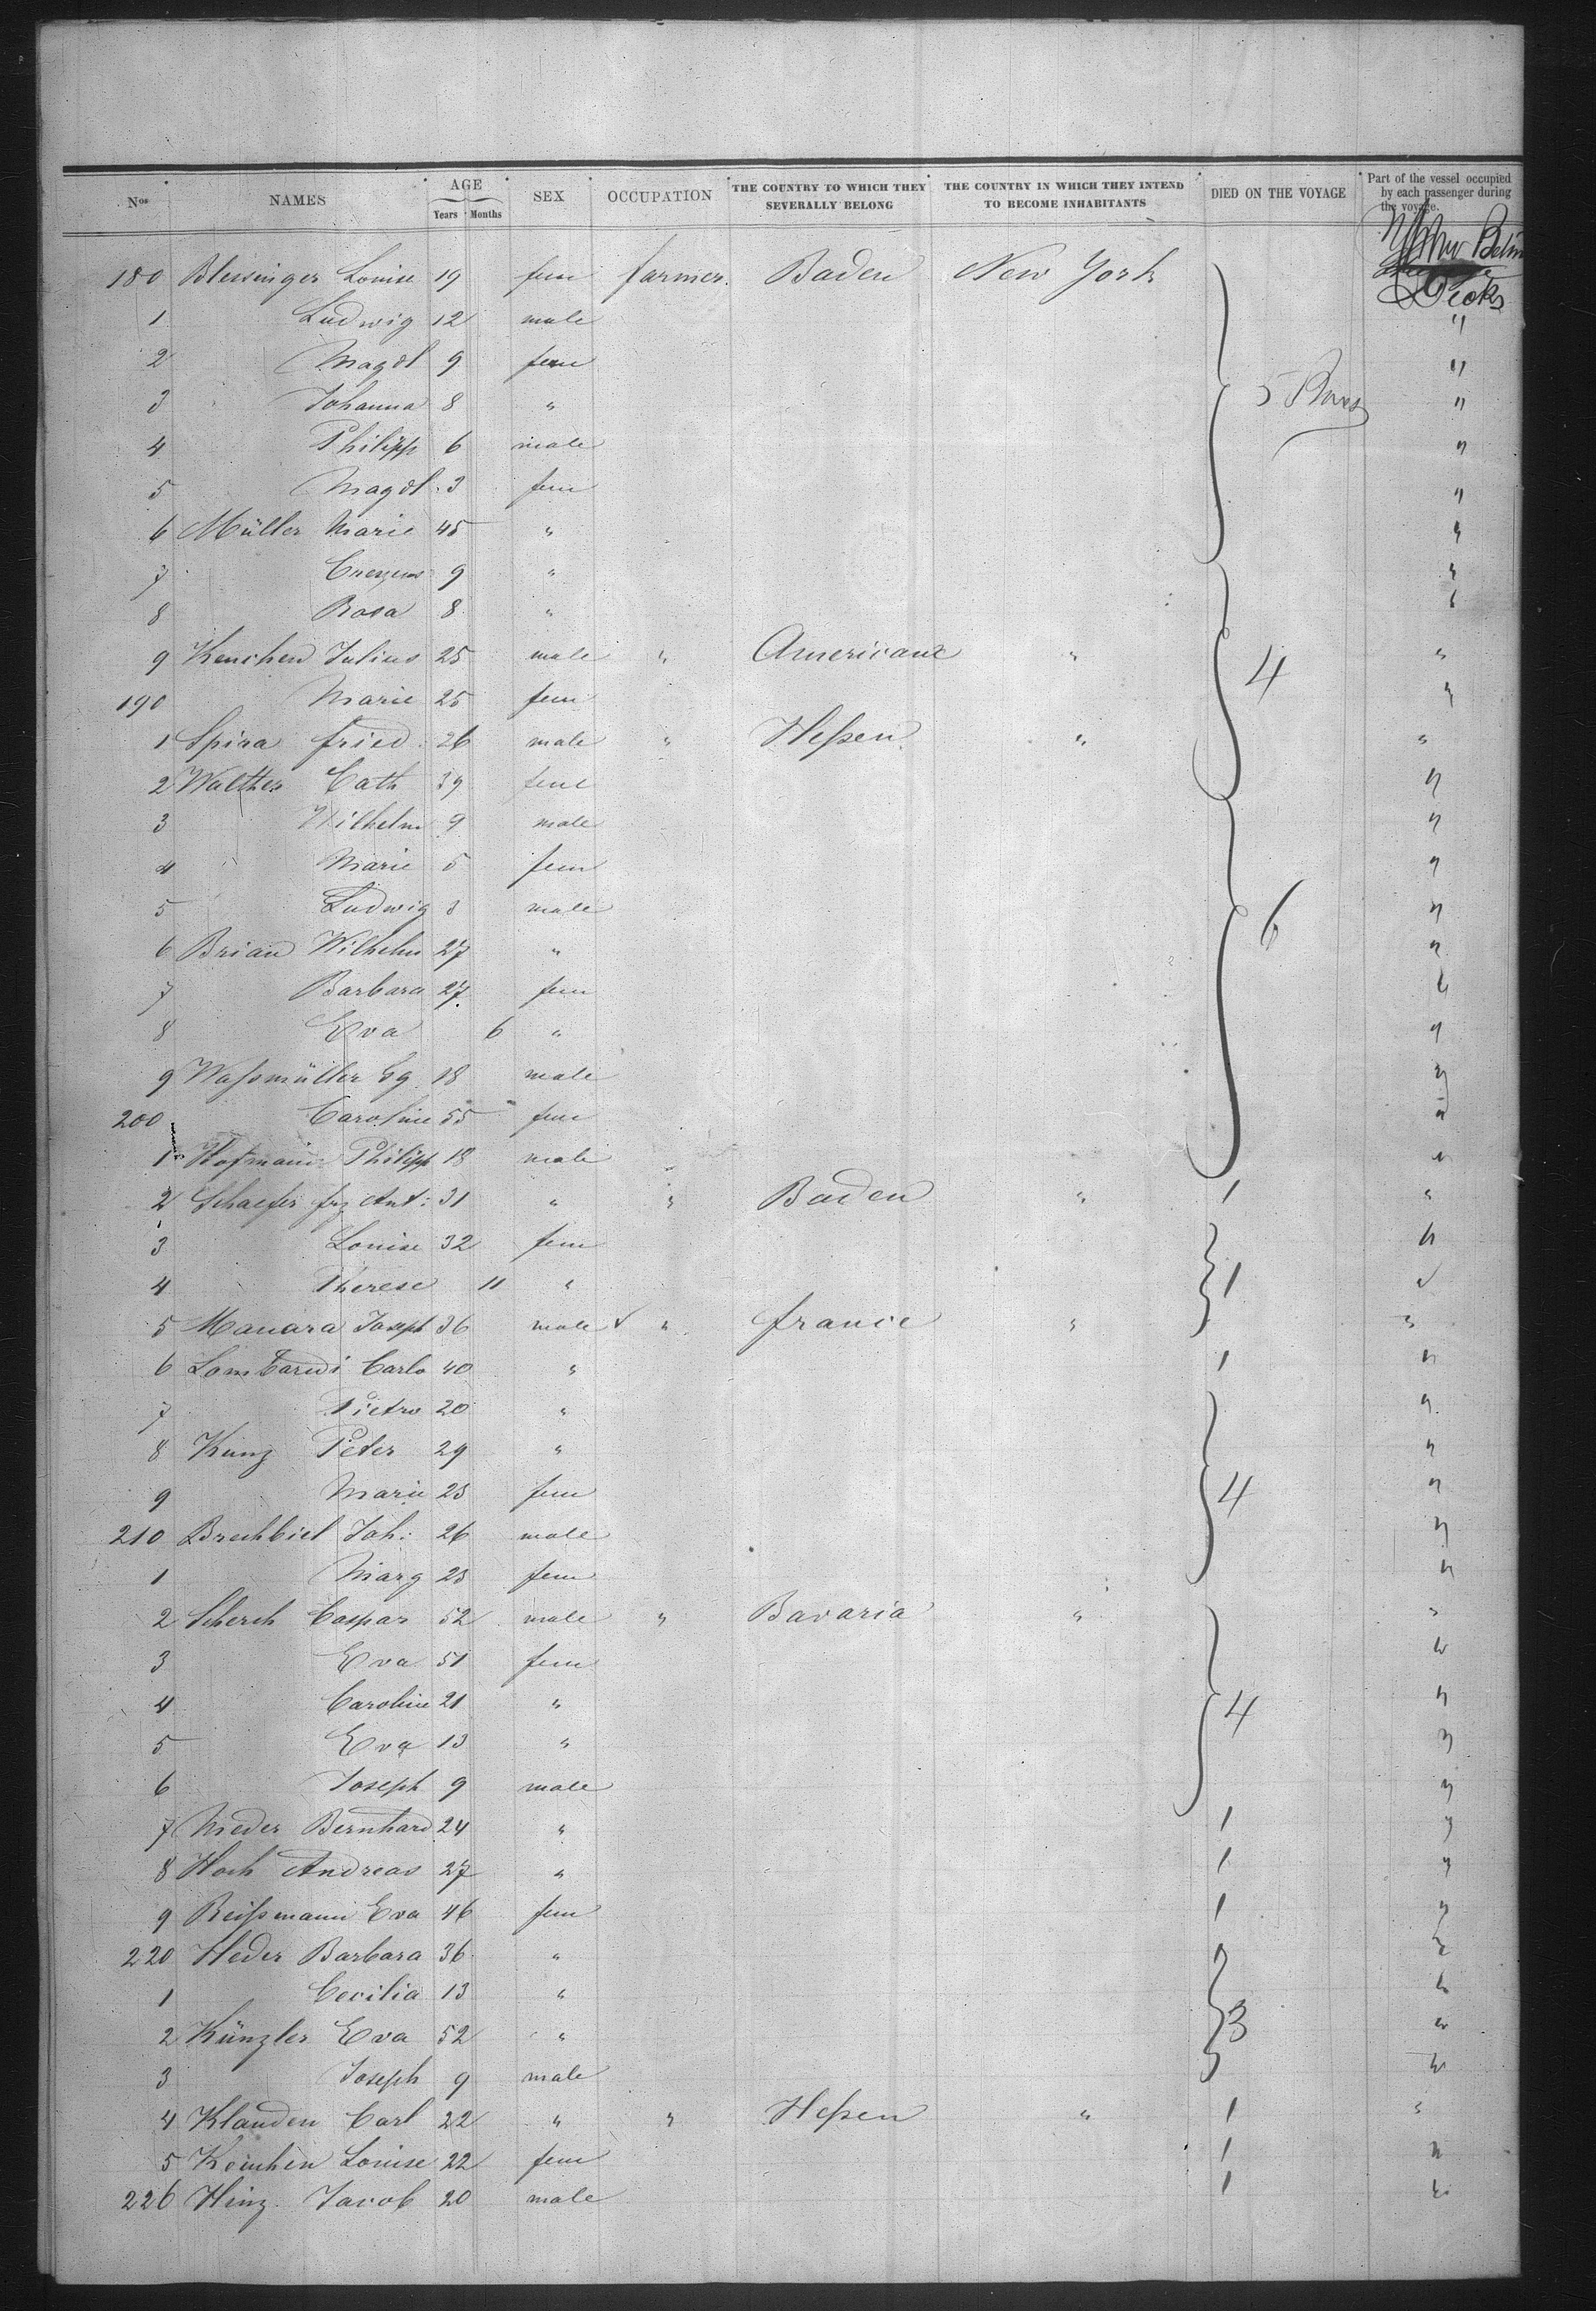 Nos NAMES AGE Years Months SEX OCCUPATION THE COUNTRY TO WHICH THEY SEVERALLY BELONG THE COUNTRY IN WHICH THEY INTEND TO BECOME INHABITANTS DIED ON THE VOYAGE Part of the vessel occupied by each passenger during the voyage.
180 Blessinger Louise 19 fem farmer. Baden New York Decks
1 Ludwig 12 male "
2 Magdl 9 fem "
3 Johanna 8 " 5 "
4 Philipp 6 male "
5 Magdl. 3 fem "
6 Müller Marie 45 " "
7 9 " "
8 Rosa 8 " "
9 Kenchen Julius 25 male " Americane " 4 "
190 Marie 25 fem "
1 Spira fried. 26 male " Heßen " "
2 Walther Cath 39 fem "
3 Wilhelm 9 male "
4 Marie 5 fem "
5 Ludwig 3 male 6 "
6 Brian Wilhelm 27 " "
7 Barbara 27 fem "
8 Eva 6 " "
9 Waßmüller Gg. 18 male "
200 Caroline 55 " fem "
1 Hofmann Philipp 18 male "
2 Schaefer frz Ant: 31 " " Baden " 1 "
3 Louise 32 fem "
4 Therese 11 " 1 "
5 Manara Joseph 36 male " france " "
6 Lombardi Carlo 40 " 1 "
7 Pietro 20 " "
8 Kunz Peter 29 " "
9 Marie 23 fem 4 "
210 Brechbiel Joh: 26 male "
1 Marg 23 fem "
2 Scherch Caspar 52 male " Bavaria " "
3 Eva 51 fem "
4 Caroline 21 " 4 "
5 Eva 13 " "
6 Joseph 9 male "
7 Meder Bernhard 24 " 1 "
8 Hoch Andreas 27 " 1 "
9 Reißmann Eva 46 fem 1 "
220 Heder Barbara 36 " "
1 Cecilia 13 " "
2 Künzler Eva 52 " 3 "
3 Joseph 9 male "
4 Klanden Carl 22 " " Heßen " 1 "
5 Louise 22 fem 1 "
226 Hinz. Jacob 20 male 1 "